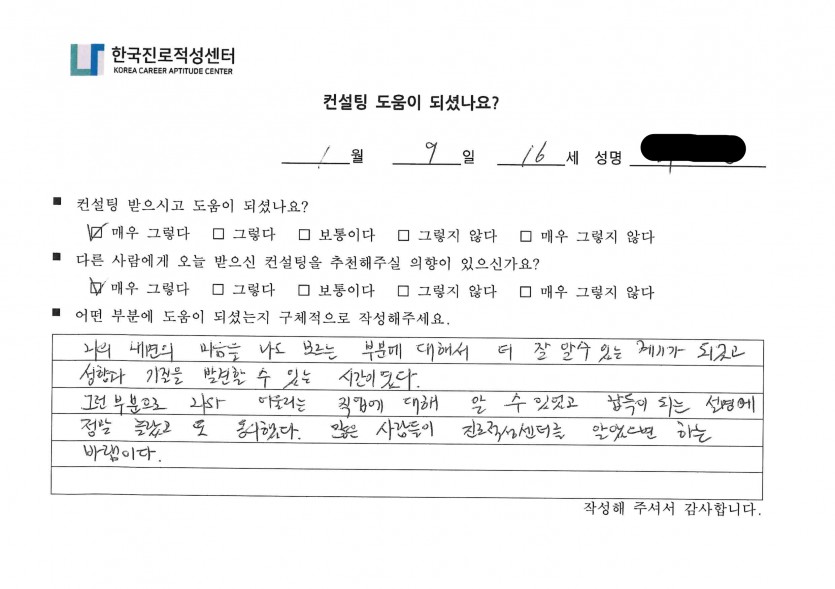 한국진로적성센터
KOREA CAREER APTITUDE CENTER
컨설팅 도움이 되셨나요?
1 월 9 일 16 세 성명
■ 컨설팅 받으시고 도움이 되셨나요?
☑ 매우 그렇다 □ 그렇다 □ 보통이다 □ 그렇지 않다 □ 매우 그렇지 않다
■ 다른 사람에게 오늘 받으신 컨설팅을 추천해주실 의향이 있으신가요?
☑ 매우 그렇다 □ 그렇다 □ 보통이다 □ 그렇지 않다 □ 매우 그렇지 않다
■ 어떤 부분에 도움이 되셨는지 구체적으로 작성해주세요.
나의 내면의 마음을 나도 모르는 부분에 대해서 더 잘 알수 있는 계기가 되었고
성향과 기질을 발견할 수 있는 시간이 됐다.
그런 부분으로 나와 어울리는 직업에 대해 알 수 있었고 납득이 되는 설명에
정말 놀랐고 또 많은 사람들이 진로적성센터를 알았으면 하는
바램이다.
작성해 주셔서 감사합니다.